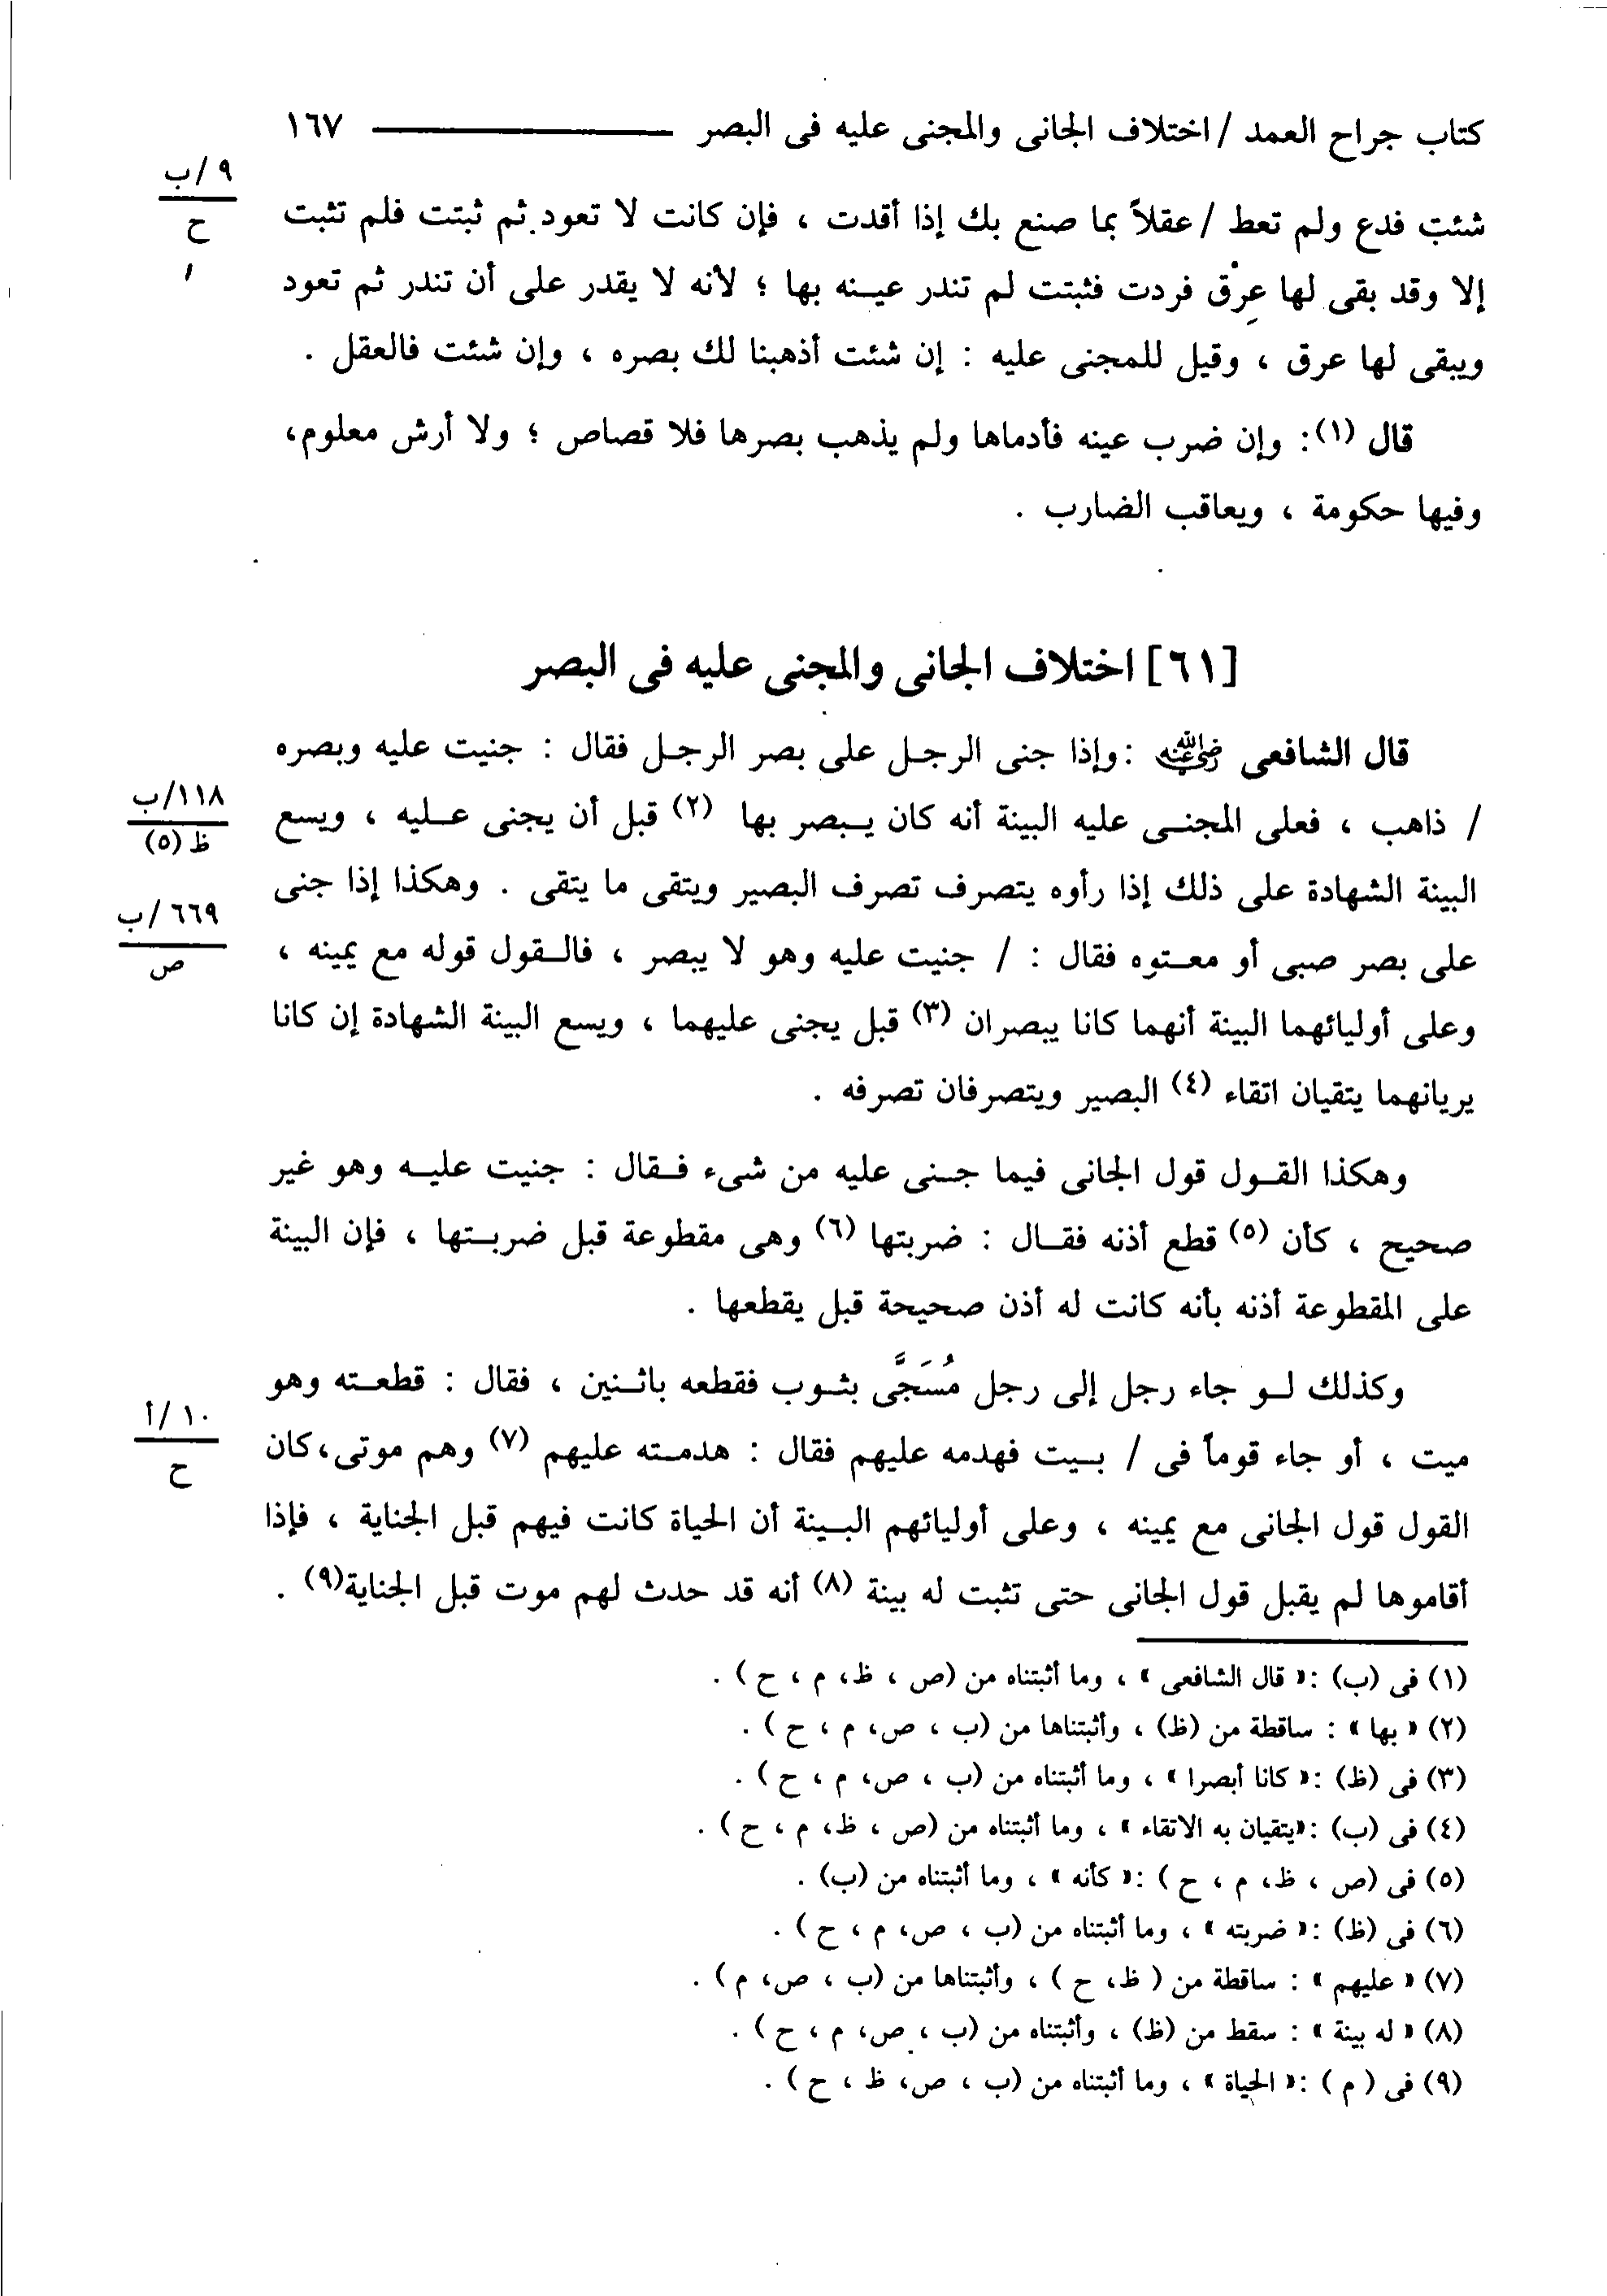 كتاب جراح العمد / اختلاف الجانى والمجنى عليه فى البصر ١٦٧
٩/ب
ح
شئت فدع ولم تعط / عقلاً بما صنع بك إذا أقدت ، فإن كانت لا تعود ثم ثبتت فلم تثبت
إلا وقد بقى لها عِرْق فردت فثبتت لم تندر عينه بها ؛ لأنه لا يقدر على أن تندر ثم تعود
ويبقى لها عرق ، وقيل للمجنى عليه : إن شئت أذهبنا لك بصره ، وإن شئت فالعقل .
قال (١): وإن ضرب عينه فأدماها ولم يذهب بصرها فلا قصاص ؛ ولا أرش معلوم،
وفيها حكومة ، ويعاقب الضارب .
[٦١] اختلاف الجانى والمجنى عليه فى البصر
قال الشافعى رضي الله عنه : وإذا جنى الرجل على بصر الرجل فقال : جنيت عليه وبصره
١١٨/ب
ظ (٥)
/ ذاهب ، فعلى المجنى عليه البينة أنه كان يبصر بها (٢) قبل أن يجنى عليه ، ويسع
البينة الشهادة على ذلك إذا رأوه يتصرف تصرف البصير ويتقى ما يتقى . وهكذا إذا جنى
٦٦٩/ب
ص
على بصر صبى أو معتوه فقال : / جنيت عليه وهو لا يبصر ، فالقول قوله مع يمينه ،
وعلى أوليائهما البينة أنهما كانا يبصران (٣) قبل يجنى عليهما ، ويسع البينة الشهادة إن كانا
يريانهما يتقيان اتقاء (٤) البصير ويتصرفان تصرفه .
وهكذا القول قول الجانى فيما جنى عليه من شىء فقال : جنيت عليه وهو غير
صحيح ، كأن (٥) قطع أذنه فقال : ضربتها (٦) وهى مقطوعة قبل ضربتها ، فإن البينة
على المقطوعة أذنه بأنه كانت له أذن صحيحة قبل يقطعها .
وكذلك لو جاء رجل إلى رجل مُسَجًّى بثوب فقطعه باثنين ، فقال : قطعته وهو
١٠/أ
ح
ميت ، أو جاء قوماً فى / بيت فهدمه عليهم فقال : هدمته عليهم (٧) وهم موتى، كان
القول قول الجانى مع يمينه ، وعلى أوليائهم البينة أن الحياة كانت فيهم قبل الجناية ، فإذا
أقاموها لم يقبل قول الجانى حتى تثبت له بينة (٨) أنه قد حدث لهم موت قبل الجناية(٩) .
(١) فى (ب) :« قال الشافعى » ، وما أثبتناه من (ص ، ظ، م ، ح ) .
(٢) « بها » : ساقطة من (ظ) ، وأثبتناها من (ب ، ص، م ، ح ) .
(٣) فى (ظ) :« كانا أبصرا » ، وما أثبتناه من (ب ، ص، م ، ح ) .
(٤) فى (ب) :«يتقيان به الاتقاء » ، وما أثبتناه من (ص ، ظ، م ، ح ) .
(٥) فى (ص ، ظ، م ، ح ) :« كأنه » ، وما أثبتناه من (ب) .
(٦) فى (ظ) :« ضربته » ، وما أثبتناه من (ب ، ص، م ، ح ) .
(٧) « عليهم » : ساقطة من ( ظ، ح ) ، وأثبتناها من (ب ، ص، م ) .
(٨) « له بينة » : سقط من (ظ) ، وأثبتناه من (ب ، ص، م ، ح ) .
(٩) فى ( م ) :« الحياة » ، وما أثبتناه من (ب ، ص، ظ ، ح ) .